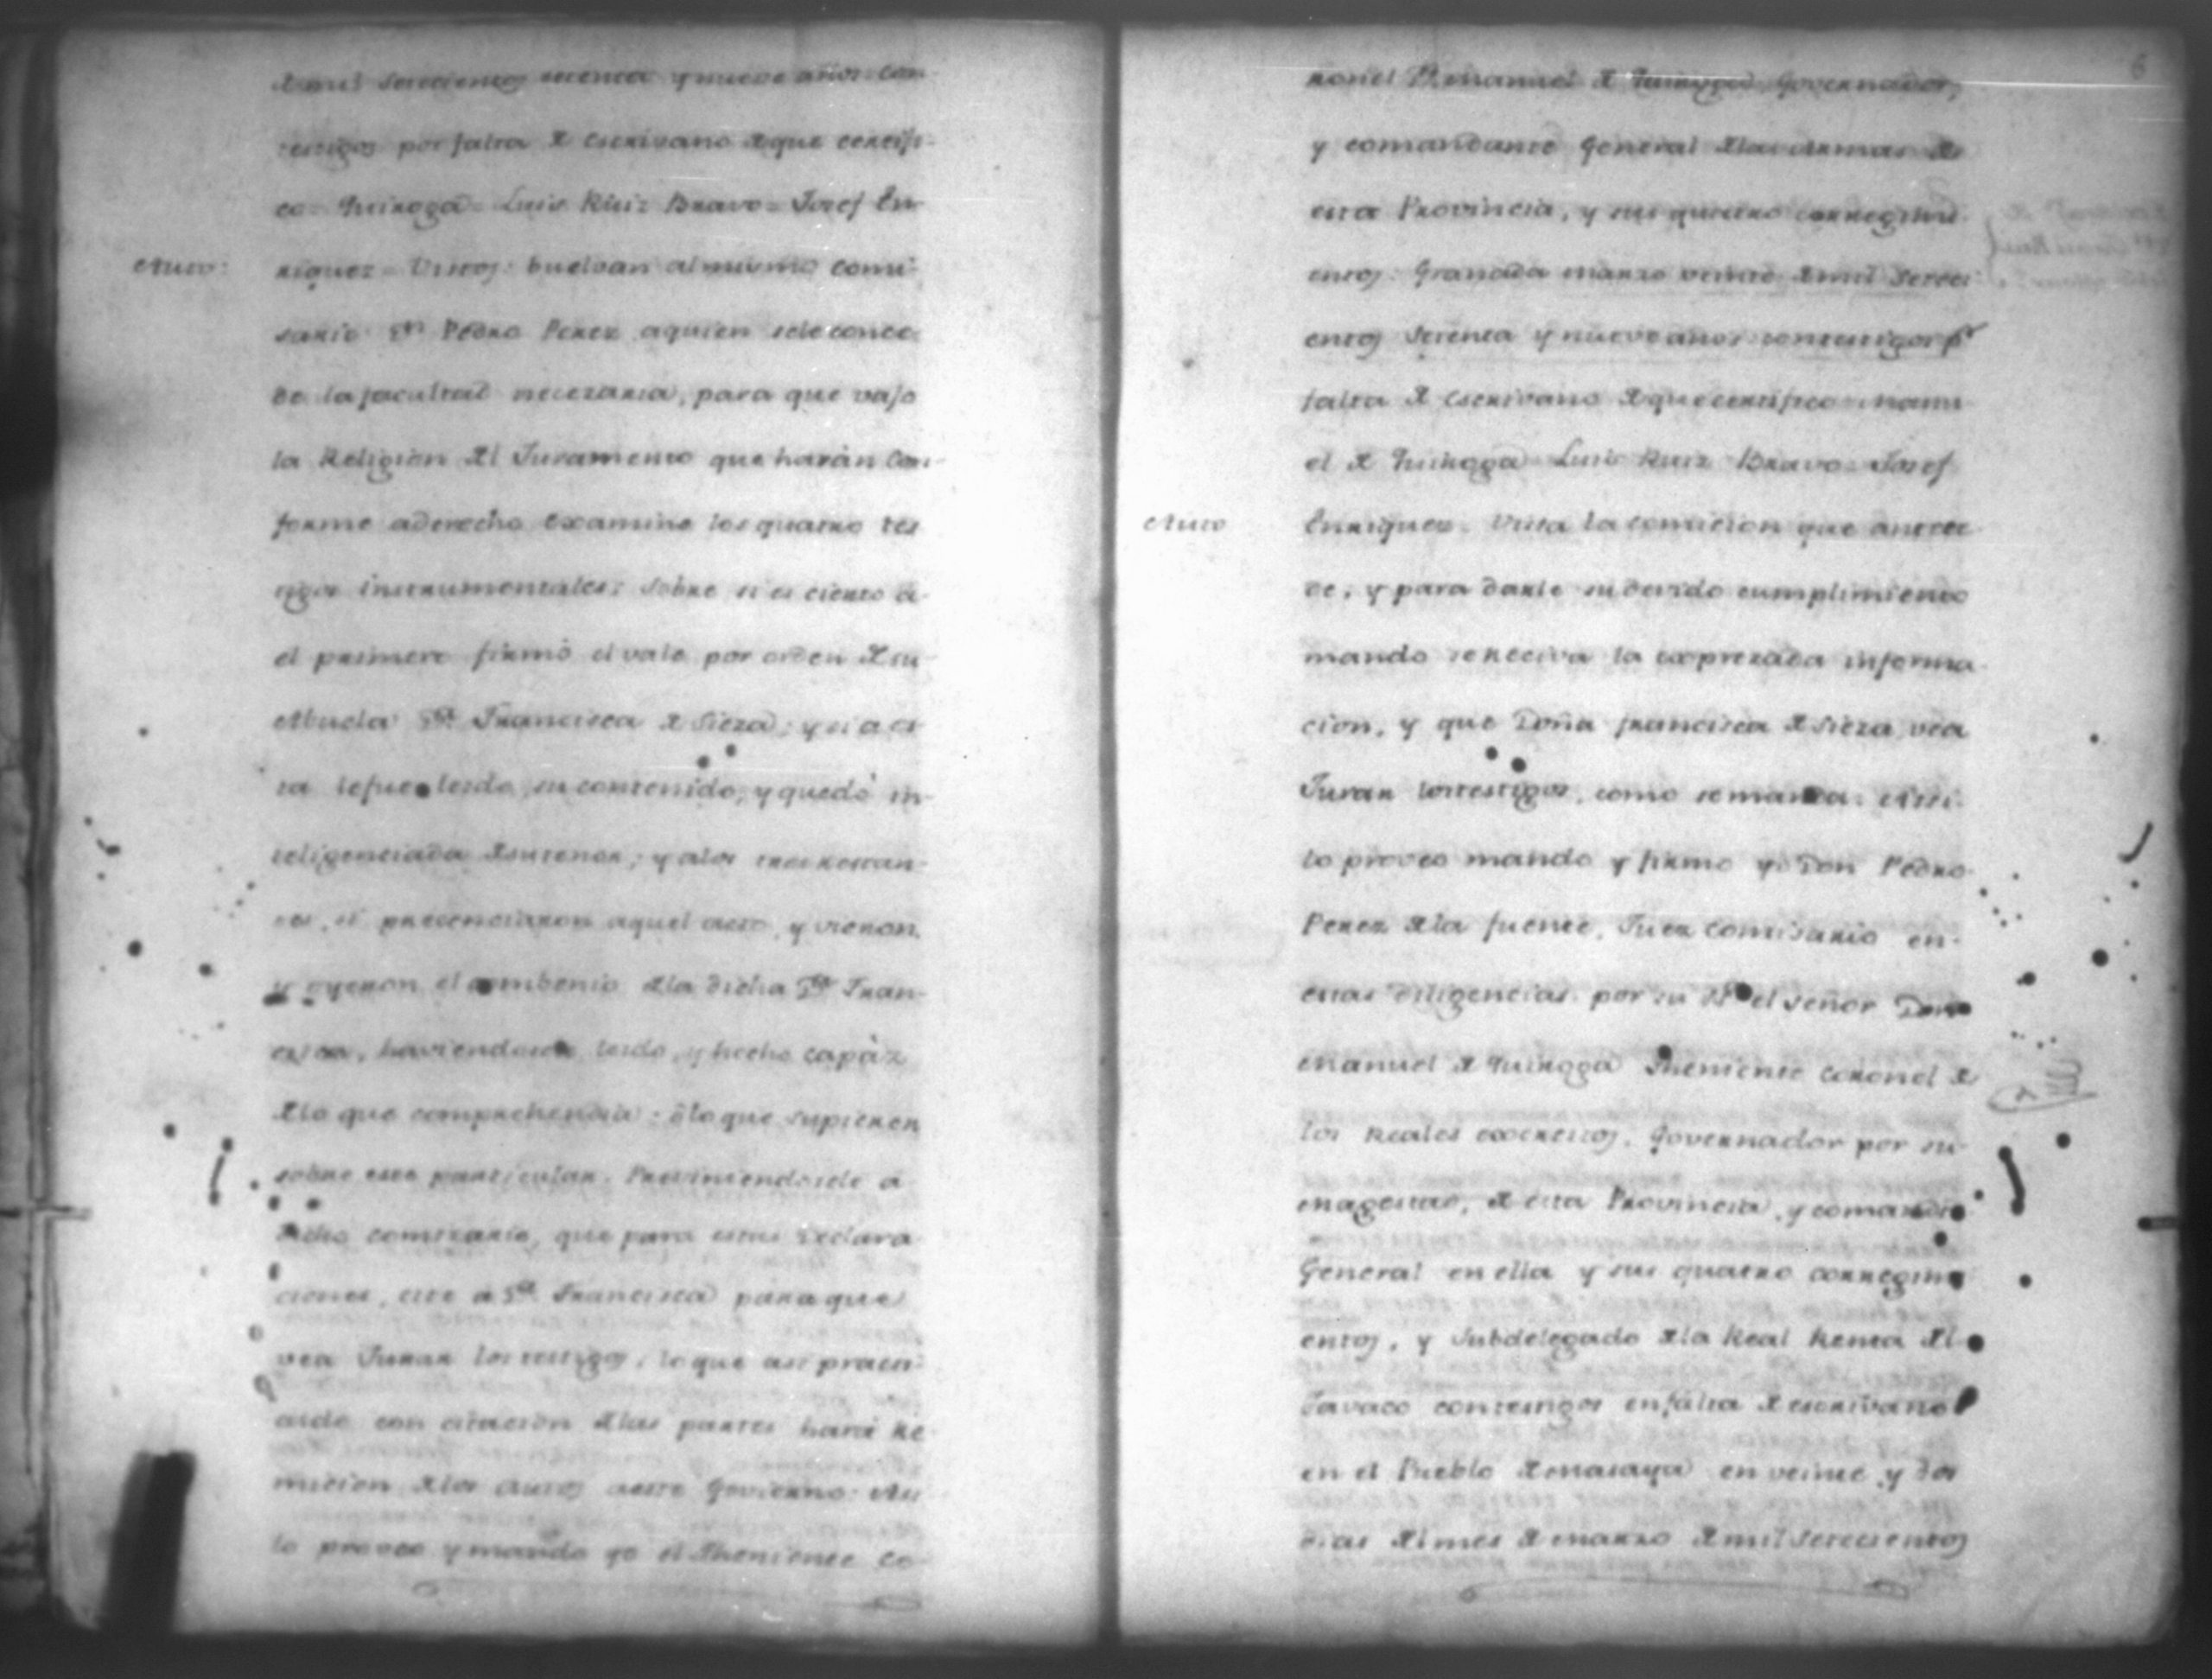 de mil setecientos setenta y nueve años: con
testigos por falta de escrivano de que certifi-
co = Quiroga = Luis Ruiz Bravo = Josef En-
Auto:
riquez = Vistos: buelvan al mismo comi-
sario Dn Pedro Perez aquien sele conce-
de la facultad necezaria, para que vajo
la Religion del Juramento que harán con-
forme aderecho examine los quatro tes
tigos instrumentales: sobre si es cierto á
el primero firmó el vale por orden de su
Abuela Da Francisca de Sieza; y si a es-
ta lefue leido su contenido, y quedó in-
teligenciada de su tenor; y alos tres restan-
tes, si precenciaron aquel acto, y vieron,
y oyeron el combenio de la dicha Da Fran-
cisca, haviendosele leido, y hecho capáz
de lo que comprehendia: ó lo que supieren
sobre este particular. Previniendosele a
dicho comizario, que para estas declara
ciones, cite a Da Francisca para que
vea Jurar los testigos, lo que asi practi-
cado con citacion de las partes hará re-
micion de los autos aeste Govierno: Asi
lo proveo y mando yo el Theniente Co-
6
ronel Dn Manuel de Quiroga Governador,
y comandante General de las Armas de
esta Provincia, y sus quatro corregimi-
entos: Granada marzo veinte de mil seteci
entos setenta y nueve años con testigos pr
falta de escrivano de que certifico = Manu-
el de Quiroga = Luis Ruiz Bravo = Josef
Auto
Enriquez. Vista la comicion que antece-
de, y para darle su devido cumplimiento
mando se reciva la exprezada informa-
cion, y que Doña francisca de Sieza, vea
Jurar los testigos, como se manda: Assi
lo proveo mando y firmo yo Don Pedro
Perez de la fuente, Juez comisario en-
estas diligencias por su el señor Don
Manuel de Quiroga Theniente coronel de
los Reales exercitos, Governador por su
magestad, de esta Provincia, y comandte
General en ella y sus quatro corregimi
entos, y Subdelegado de la Real Renta del
Tavaco con testigos en falta de escrivano
en el Pueblo de Masaya en veinte y dos
dias del mes de marzo de mil setecientos